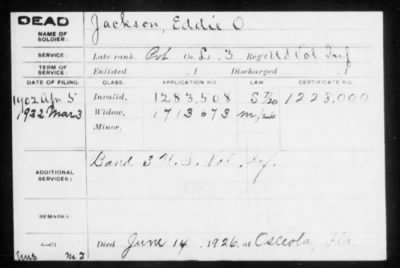 DEAD
NAME OF SOLDIER:
Jackson, Eddie O.
SERVICE:
Late rank, Co. 3 Reg't U S Vol Inf
TERM OF SERVICE:
Enlisted , 1 Discharged , 1
DATE OF FILING. CLASS. APPLICATION NO. LAW. CERTIFICATE NO.
1902 Apr 5 Invalid, 1283,508 1228,000
1922 Mar 3 Widow, 1713673
Minor,
ADDITIONAL SERVICES:
Band 3 U.S. Vol. Inf.
REMARKS:
Died June 14, 1926, at Osceola,